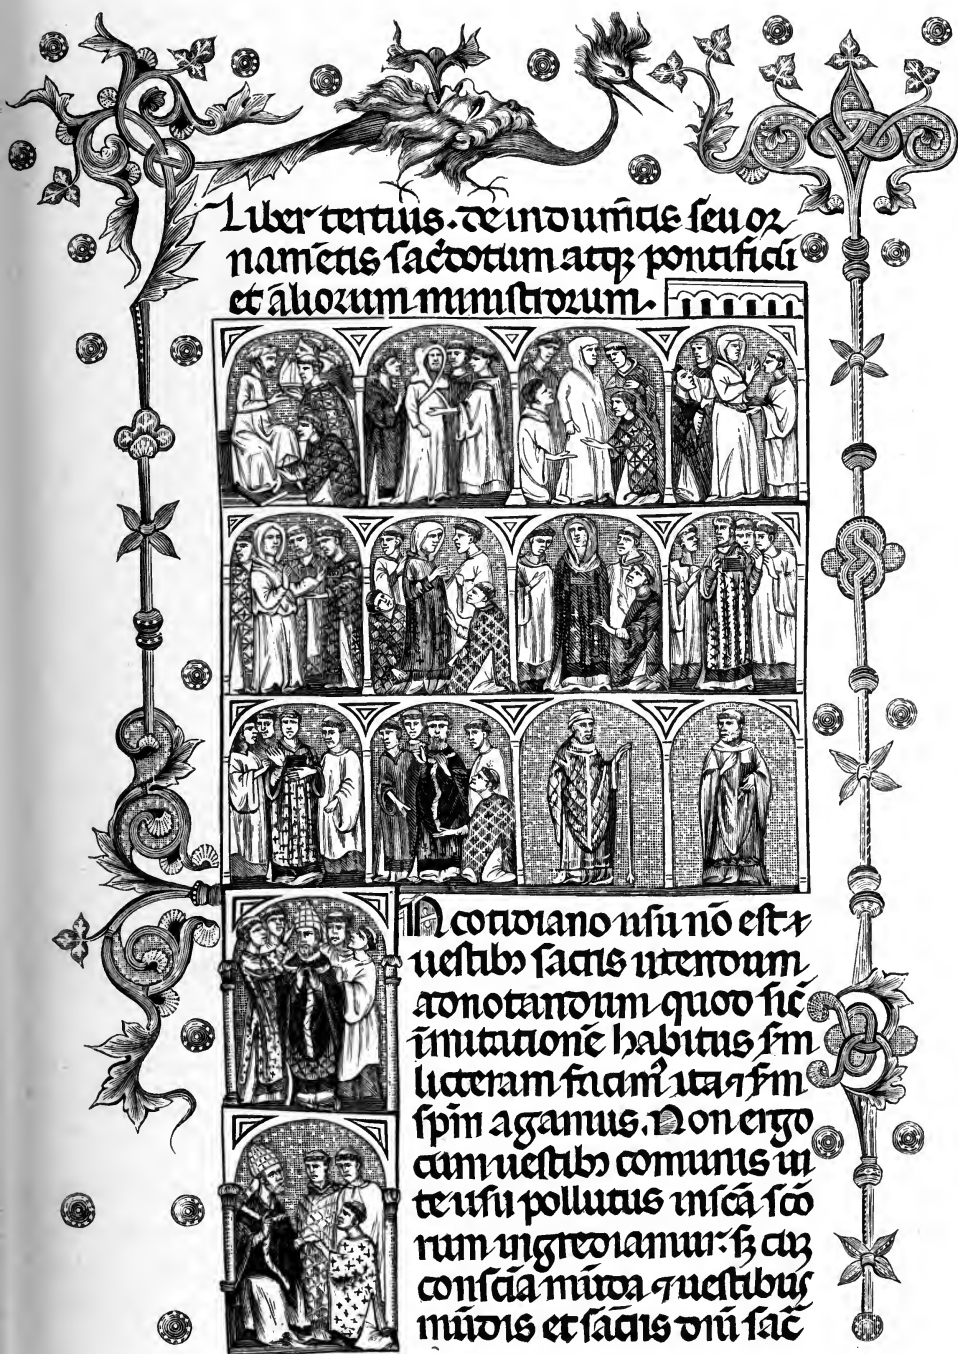 Liber tertius. de indum̄tis seu or
nam̄etis sac̓dotum atqꝫ pontificū
et āliorum ministrorum.
IN cotidiano usu nō est
uestibꝫ sacris utendum
adnotandum quod sic̄
īmutationē habitus
litteram ita ⁊
sp̄m agamus. Non ergo
cum uestibꝫ comunis ui
te usu pollutus in sc̄a sc̄o
rum ingrediamur. sꝫ cuꝫ
consc̄ia mūda ⁊ uestibus
mūdis et sac̄is dn̄i sac̄